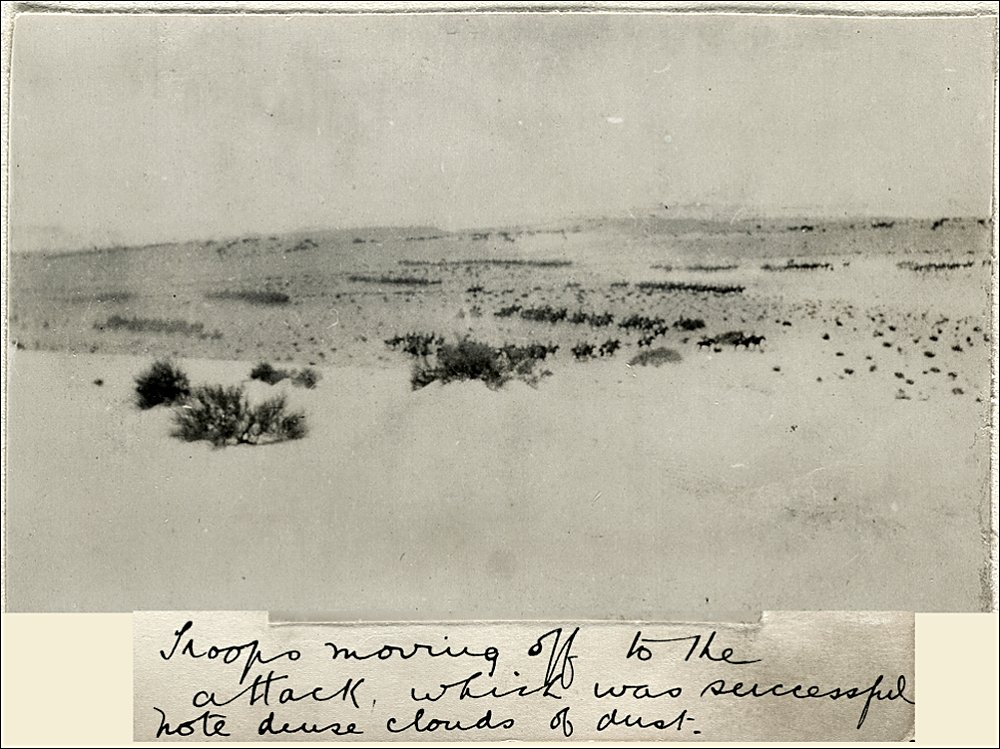 Troops moving off to the
attack, which was successful
note dense clouds of dust.